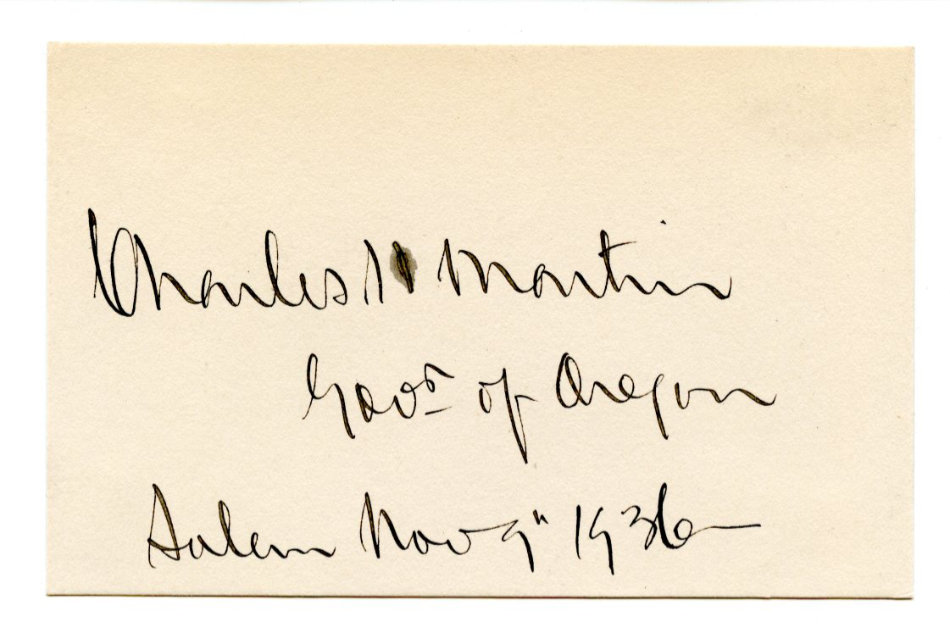 Charles H Martin
Govr of Oregon
Salem Nov 9" 1936